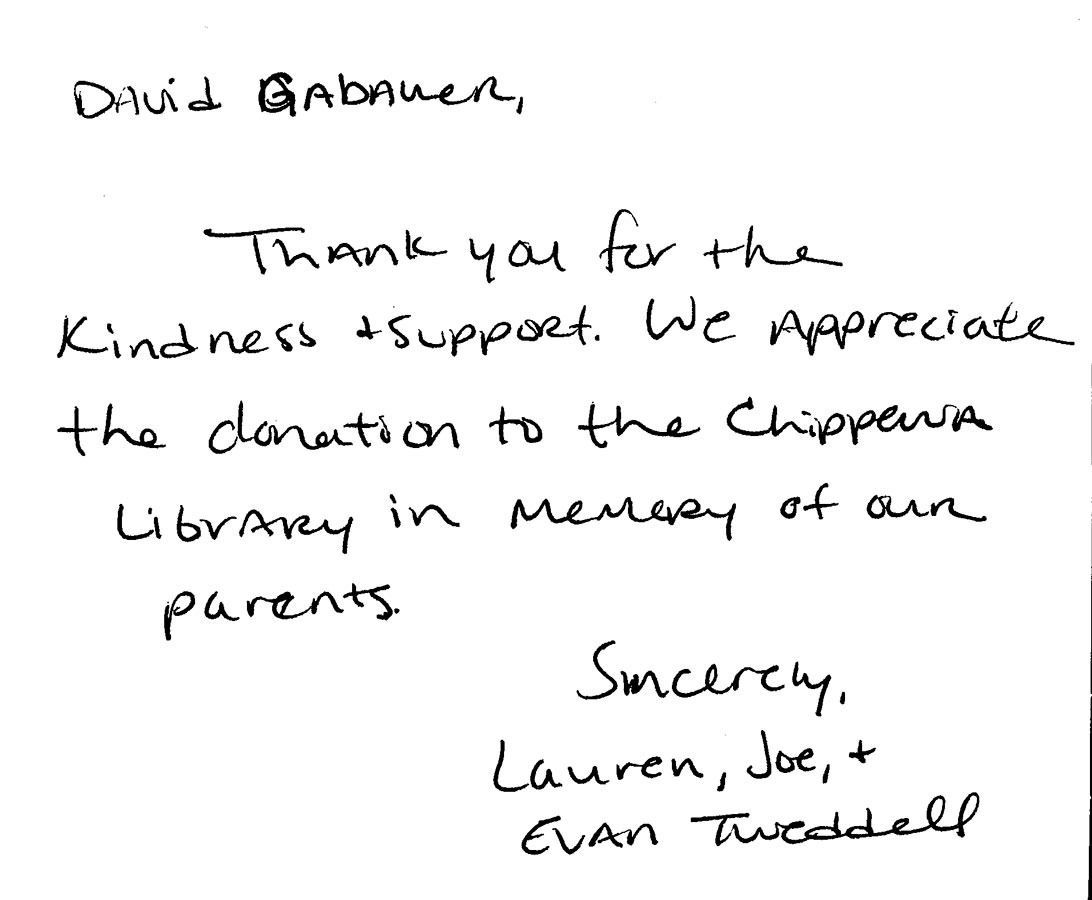 David Gabauer,
Thank you for the
Kindness + Support. We Appreciate
the donation to the Chippewa
Library in Memory of our
parents.
Sincerely,
Lauren, Joe, +
Evan Tweddell